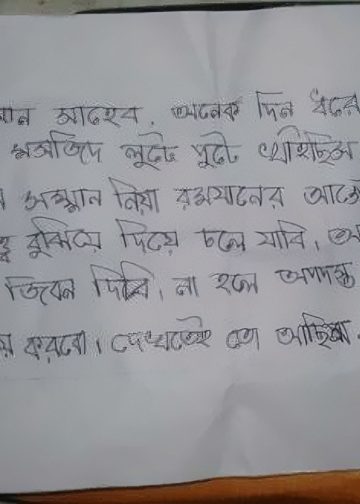 সাহেব, অনেক দিন ধরে
মসজিদে লুটে পুটে খাইছিস
সম্মান নিয়া রমযানের আগে
বুঝিয়ে দিয়ে চলে যাবি,
জিবন দিবি, না হলে অপদস্ত
করবো। দেখতেই তো আছিস।